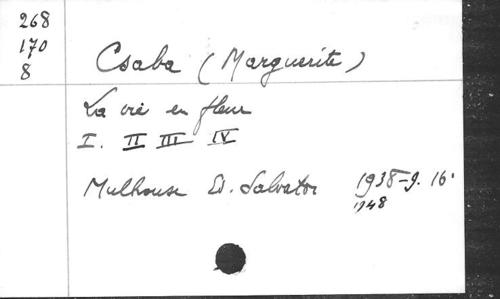 268
170
8
Csaba (Marguerite)
La vie en fleur
I. II III IV
Mulhouse Ed. Salvator 1938-9. 16°
1948